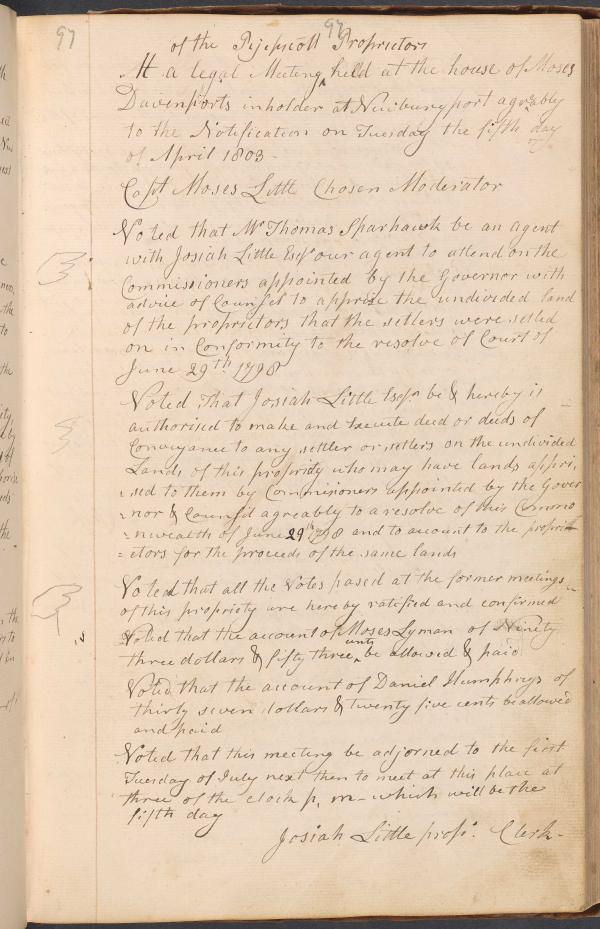 97
97
of the Pejepscott Proprietors
At a legal Meeting held at the house of Moses
Davenports inholder at Newburyport agreably
to the Notification on Tuesday the fifth day
of April 1803-
Capt Moses Little Chosen Moderator
Voted that Mr Thomas Sparhawk be an agent
with Josiah Little Esqr our agent to attend on the
Commissioners appointed by the Governor with
advice of Counsel to apprise the undivided land
of the proprietors that the setlers were setled
on in Conformity to the resolve of Court of
June 29th 1798
Voted That Josiah Little Esqr be & hereby is
authorised to make and Execute deed or deeds of
Conveyance to any settler or setlers on the undivided
Lands of this propriety who may have lands appri,
,sed to them by Commisioners appointed by the Gover
=nor & Counsil agreably to a resolve of this Common
=nwealth of June 29th 1798 and to account to the propri
=etors for the proceeds of the same lands
Voted that all the Votes pased at the former meetings
of this propriety are hereby ratified and confirmed
Voted that the account of Moses Lyman of Ninety
cents
three dollars & fifty three be allowed & paid
Voted that the account of Daniel Humphrys of
thirty seven dollars & twenty five cents be allowed
and paid
Voted that this meeting be adjorned to the first
Tuesday of July next then to meet at this place at
three of the clock p, m- which will be the
fifth day
Josiah Little props. Clerk-